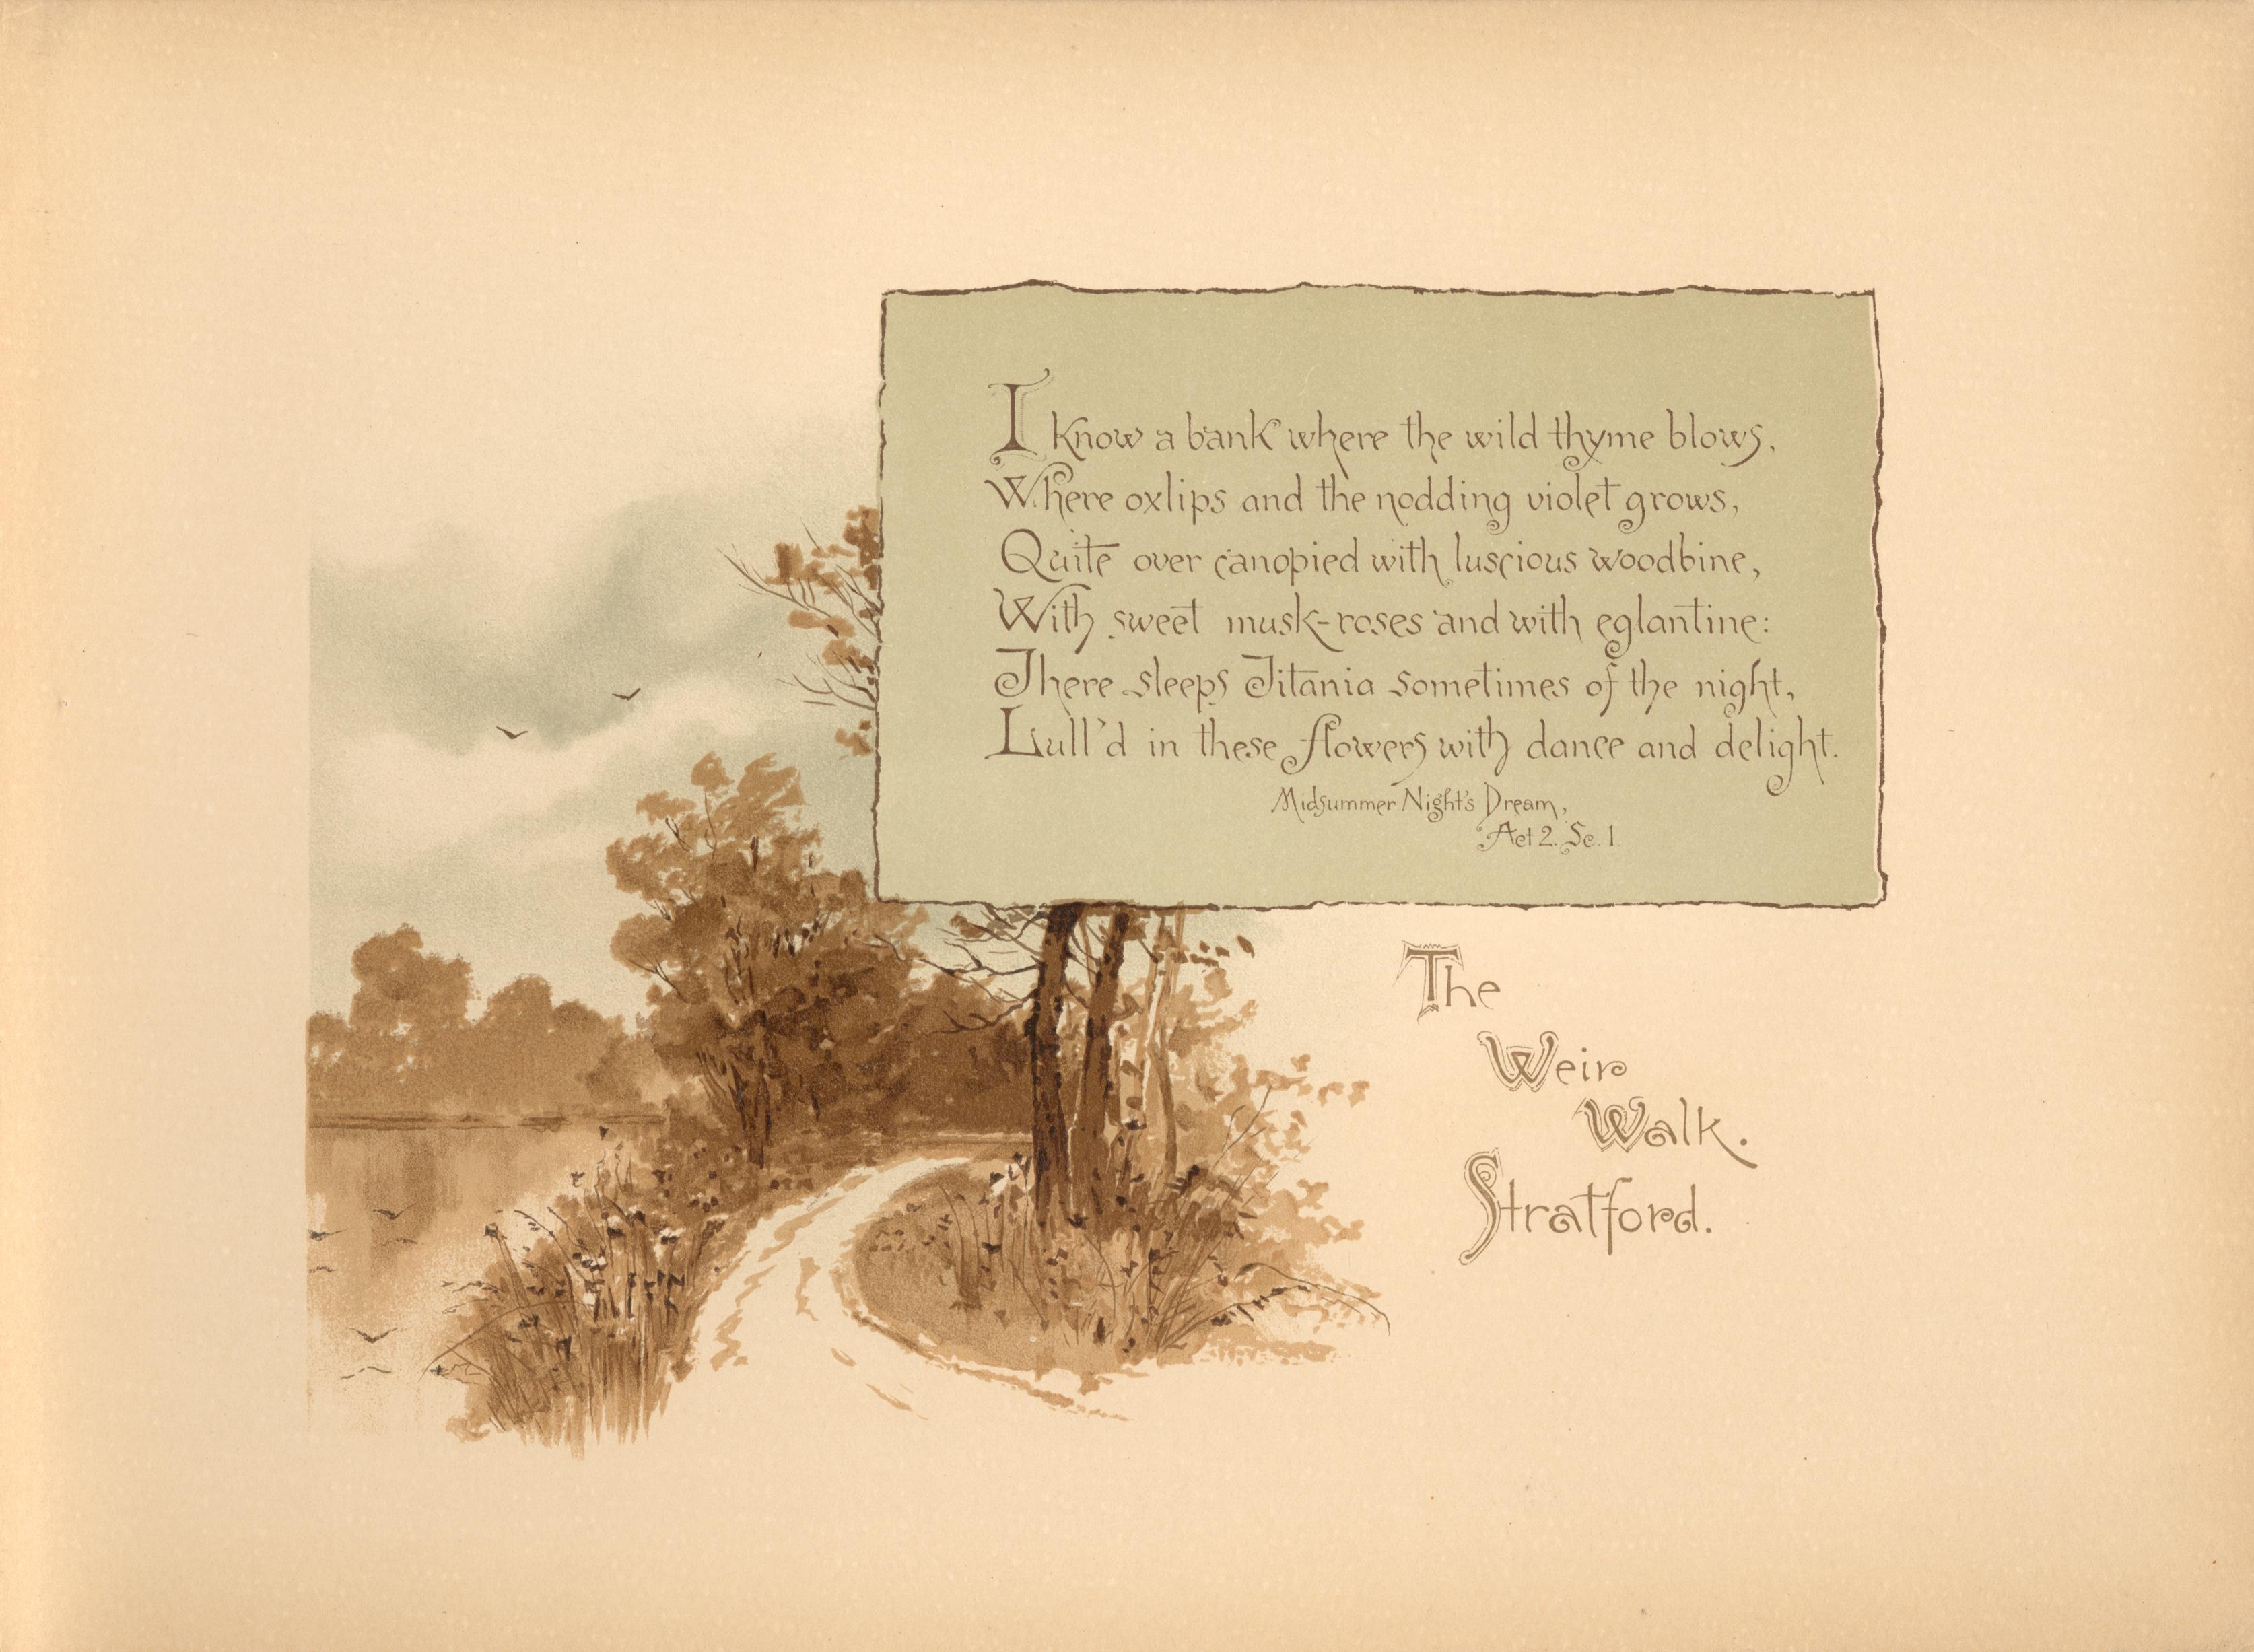 I know a bank where the wild thyme blows,
Where oxlips and the nodding violet grows,
Quite over canopied with luscious woodbine,
With sweet musk-roses and with eglantine:
There sleeps Titania sometimes of the night,
Lull'd in these flowers with dance and delight.
Midsummer Night's Dream,
Act 2. Sc. 1
The
Weir
Walk.
Stratford.